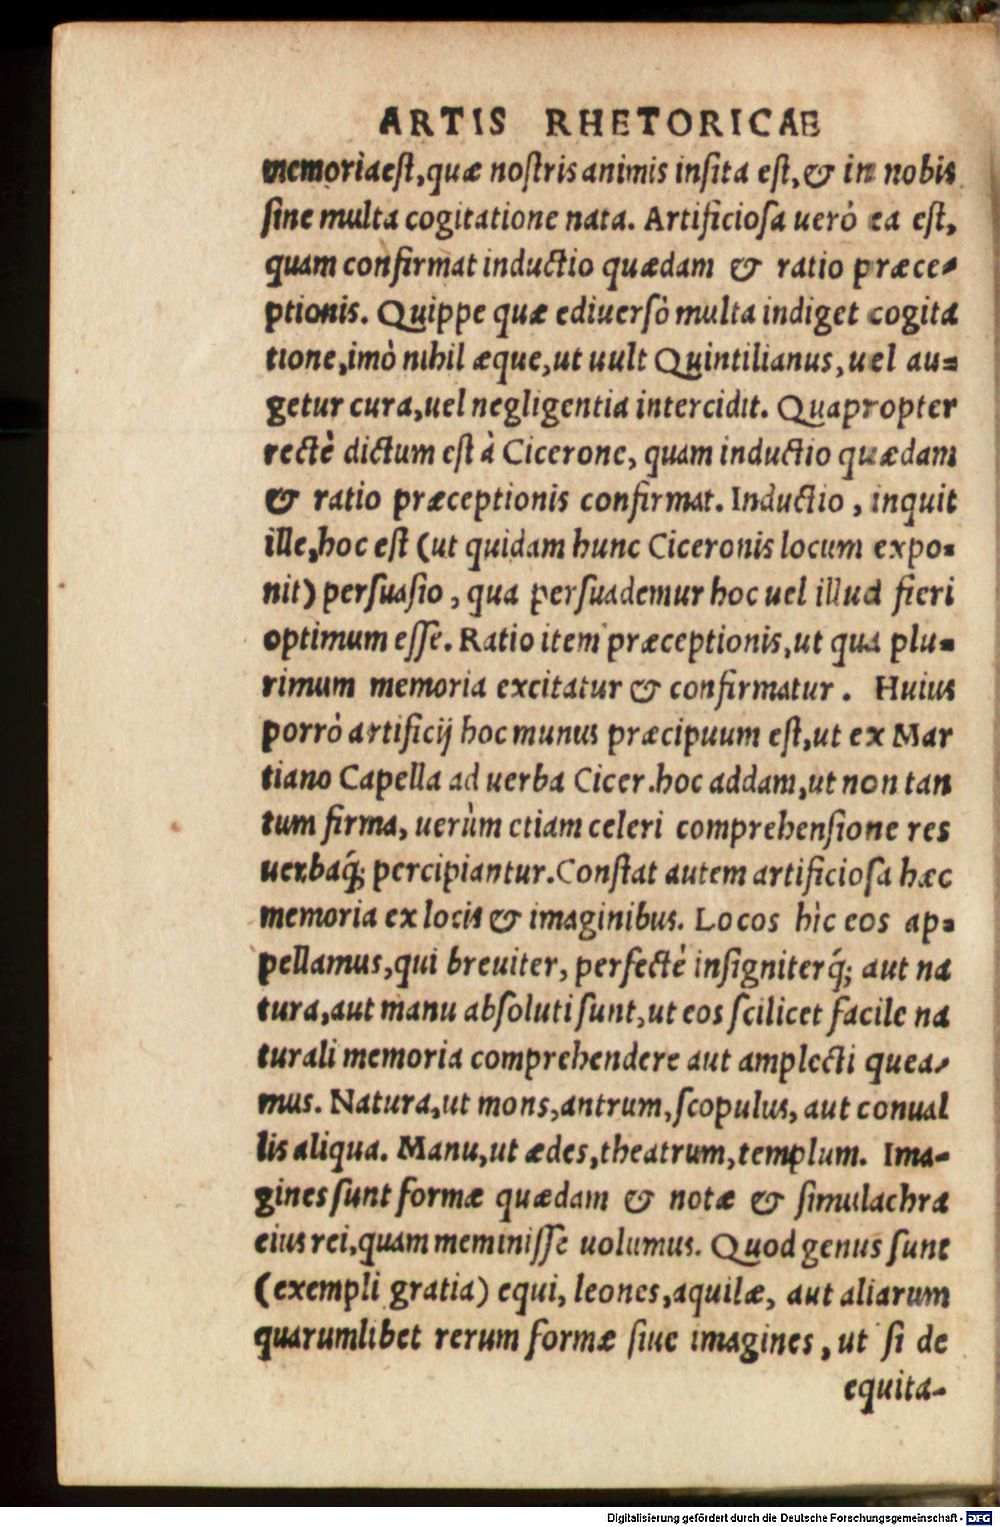 ARTIS RHETORICAE
memoria est, quæ nostris animis insita est, & in nobis
sine multa cogitatione nata. Artificiosa uerò ea est,
quam confirmat inductio quædam & ratio præce-
ptionis. Quippe quæ ediuersò multa indiget cogita
tione, imò nihil æque, ut uult Quintilianus, uel au-
getur cura, uel negligentia intercidit. Quapropter
rectè dictum est à Cicerone, quam inductio quædam
& ratio præceptionis confirmat. Inductio, inquit
ille, hoc est (ut quidam hunc Ciceronis locum expo-
nit) persuasio, qua persuademur hoc uel illud fieri
optimum esse. Ratio item præceptionis, ut qua plu-
rimum memoria excitatur & confirmatur. Huius
porrò artificij hoc munus præcipuum est, ut ex Mar
tiano Capella ad uerba Cicer. hoc addam, ut non tan
tum firma, uerùm etiam celeri comprehensione res
uerbaq́; percipiantur. Constat autem artificiosa hæc
memoria ex locis & imaginibus. Locos hìc eos ap-
pellamus, qui breuiter, perfectè insigniterq́; aut na
tura, aut manu absoluti sunt, ut eos scilicet facile na
turali memoria comprehendere aut amplecti quea-
mus. Natura, ut mons, antrum, scopulus, aut conual
lis aliqua. Manu, ut ædes, theatrum, templum. Ima-
gines sunt formæ quædam & notæ & simulachra
eius rei, quam meminisse uolumus. Quod genus sunt
(exempli gratia) equi, leones, aquilæ, aut aliarum
quarumlibet rerum formæ siue imagines, ut si de
equita-
Digitalisierung gefördert durch die Deutsche Forschungsgemeinschaft - DFG